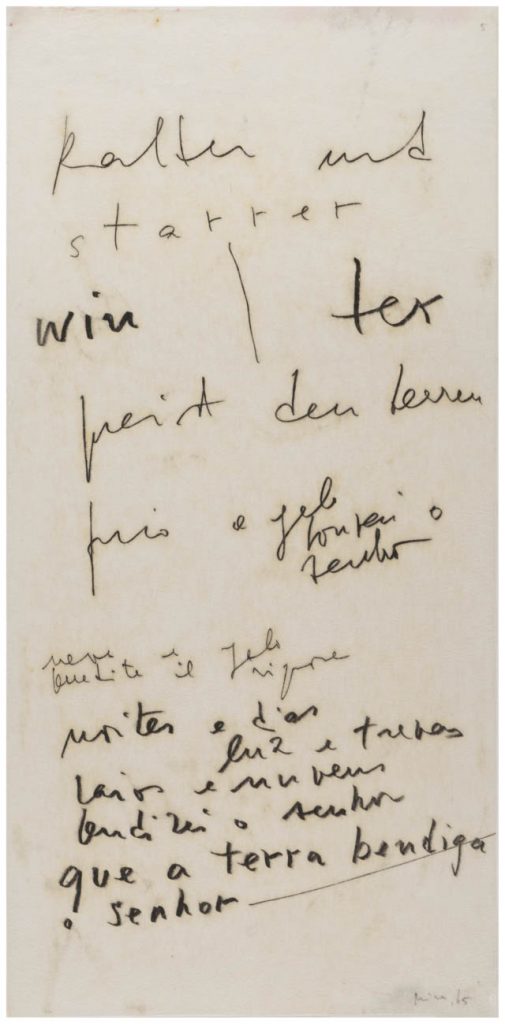 kalter und
starrer
win ter
preist den herren
frio e gelo
louvai o
senhor
neve e gelo
benedite il signore
noites e dias
luz e trevas
raios e nuvens
bendizei o senhor
que a terra bendiga
o senhor
mira, 65